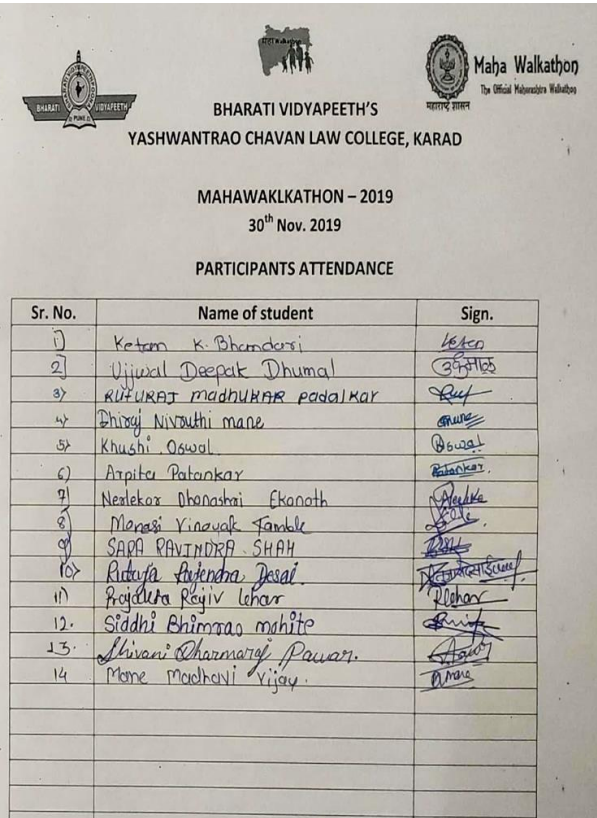 महा Walkathon
BHARATI VIDYAPEETH
PUNE
Maha Walkathon
The Official Maharashtra Walkathon
महाराष्ट्र शासन
BHARATI VIDYAPEETH'S
YASHWANTRAO CHAVAN LAW COLLEGE, KARAD
MAHAWAKLKATHON – 2019
30th Nov. 2019
PARTICIPANTS ATTENDANCE
Sr. No. Name of student Sign.
1) Ketan K. Bhandari Ketan
2] Ujjwal Deepak Dhumal
3) RUTURAJ madhukar padalkar
4) Dhiraj Nivruthi mane mane
5) Khushi Oswal Oswal
6) Arpita Patankar Patankar.
7] Nerlekar Dhanashri Ekanath
8] Manasi Vinayak Kamble
9) SARA RAVINDRA SHAH
10) Rutuja Rajendra Desai
11) Prajakta Rajiv Lehar RLehar
12. Siddhi Bhimrao mohite
13. Shivani Dharmaraj Pawar.
14 Mane Madhavi Vijay. mane